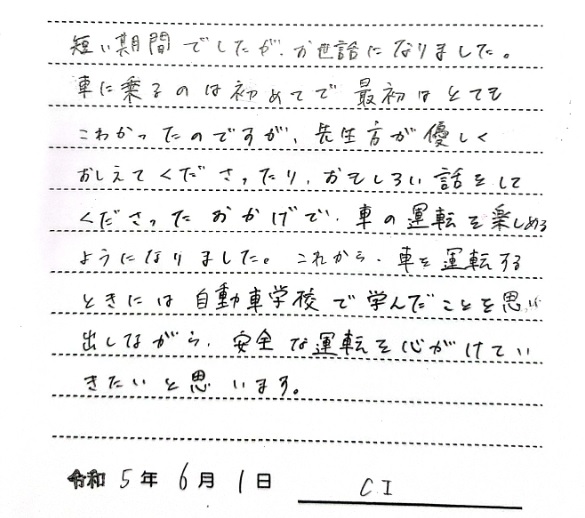 短い期間でしたが、お世話になりました。
車に乗るのは初めてで最初はとても
こわかったのですが、先生方が優しく
おしえてくださったり、おもしろい話をして
くださったおかげで、車の運転を楽しめる
ようになりました。これから、車を運転する
ときには自動車学校で学んだことを思い
出しながら、安全な運転を心がけてい
きたいと思います。
令和5年6月1日 CI